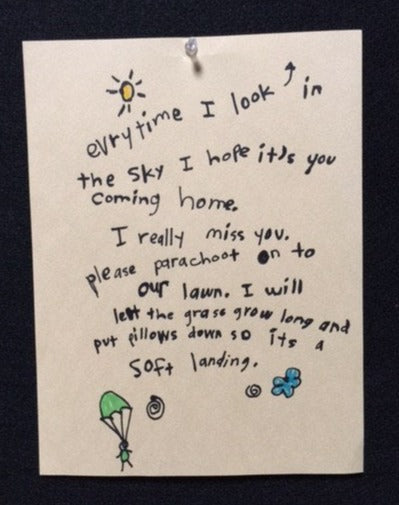 evrytime I look in
the sky I hope it's you
coming home.
I really miss you.
please parachoot on to
our lawn. I will
let the grass grow long and
put pillows down so its a
soft landing.